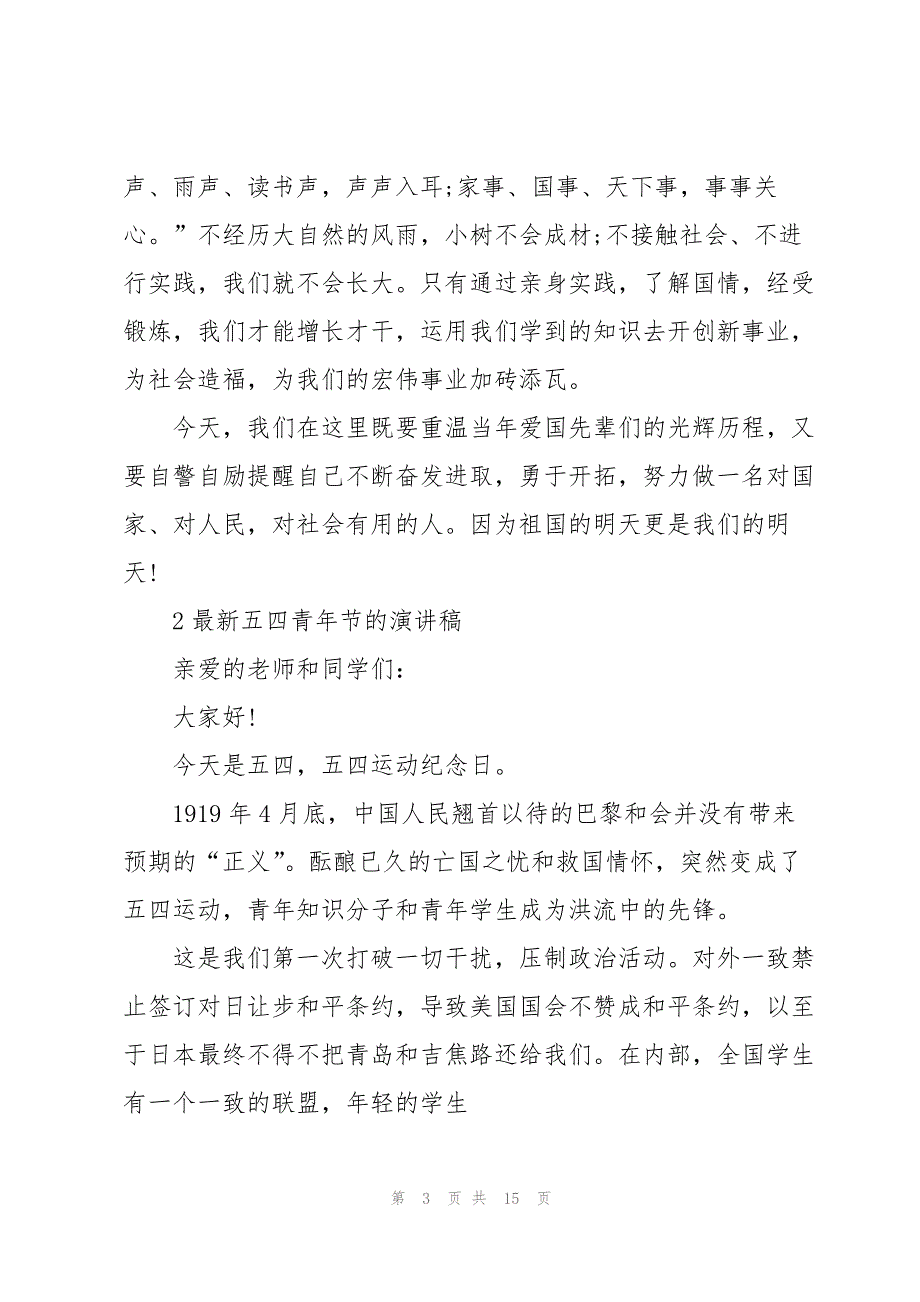 声、雨声、读书声，声声入耳;家事、国事、天下事，事事关
心。”不经历大自然的风雨，小树不会成材;不接触社会、不进
行实践，我们就不会长大。只有通过亲身实践，了解国情，经受
锻炼，我们才能增长才干，运用我们学到的知识去开创新事业，
为社会造福，为我们的宏伟事业加砖添瓦。
今天，我们在这里既要重温当年爱国先辈们的光辉历程，又
要自警自励提醒自己不断奋发进取，勇于开拓，努力做一名对国
家、对人民，对社会有用的人。因为祖国的明天更是我们的明
天!
2 最新五四青年节的演讲稿
亲爱的老师和同学们:
大家好!
今天是五四，五四运动纪念日。
1919 年 4 月底，中国人民翘首以待的巴黎和会并没有带来
预期的“正义”。酝酿已久的亡国之忧和救国情怀，突然变成了
五四运动，青年知识分子和青年学生成为洪流中的先锋。
这是我们第一次打破一切干扰，压制政治活动。对外一致禁
止签订对日让步和平条约，导致美国国会不赞成和平条约，以至
于日本最终不得不把青岛和吉焦路还给我们。在内部，全国学生
有一个一致的联盟，年轻的学生
第 3 页 共 15 页